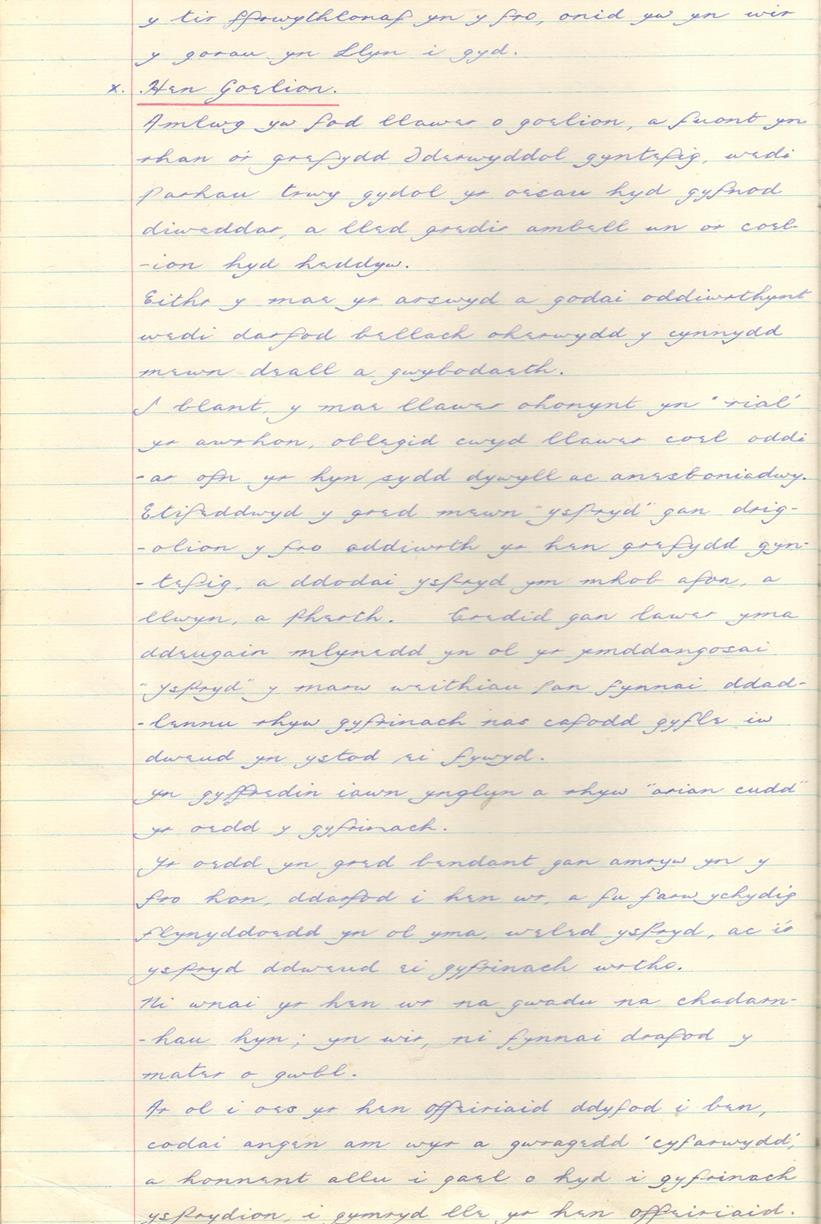 y tir ffrwythlonaf yn y fro, onid yw yn wir
y gorau yn Llyn i gyd.
x. Hen Goelion.
Amlwg yw fod llawer o goelion, a fuont yn
rhan o'r grefydd Dderwyddol gyntefig, wedi
parhau trwy gydol yr oesau hyd gyfnod
diweddar, a lled gredir ambell un o'r coel-
-ion hyd heddyw.
Eithr y mae yr arswyd a godai oddiwrthynt
wedi darfod bellach oherwydd y cynnydd
mewn deall a gwybodaeth.
I blant y mae llawer ohonynt yn "rial"
yr awrhon, oblegid cwyd llawer coel oddi
-ar ofn yr hyn sydd dywyll ac anesboniadwy.
Etifeddwyd y gred mewn "ysbryd" gan drig-
-olion y fro oddiwrth yr hen grefydd gyn-
-tefig, a ddodai ysbryd ym mhob afon, a
llwyn, a pherth. Credid gan lawer yma
ddeugain mlynedd yn ol yr ymddangosai
"ysbryd" y marw weithiau pan fynnai ddad-
-lennu rhyw gyfrinach nas cafodd gyfle iw
dweud yn ystod ei fywyd.
Yn gyffredin iawn ynglyn a rhyw "arian cudd"
yr oedd y gyfrinach.
Yr oedd yn gred bendant gan amryw yn y
fro hon, ddarfod i hen wr, a fu farw ychydig
flynyddoedd yn ol yma, weled ysbryd, ac i'r
ysbryd ddweud ei gyfrinach wrtho.
Ni wnai yr hen wr na gwadu na chadarn-
-hau hyn; yn wir, ni fynnai drafod y
mater o gwbl.
Ar ol i oes yr hen offeiriaid ddyfod i ben,
codai angen am wyr a gwragedd 'cyfarwydd',
a honnent allu i gael o hyd i gyfrinach
ysbrydion, i gymryd lle yr hen offeiriaid.